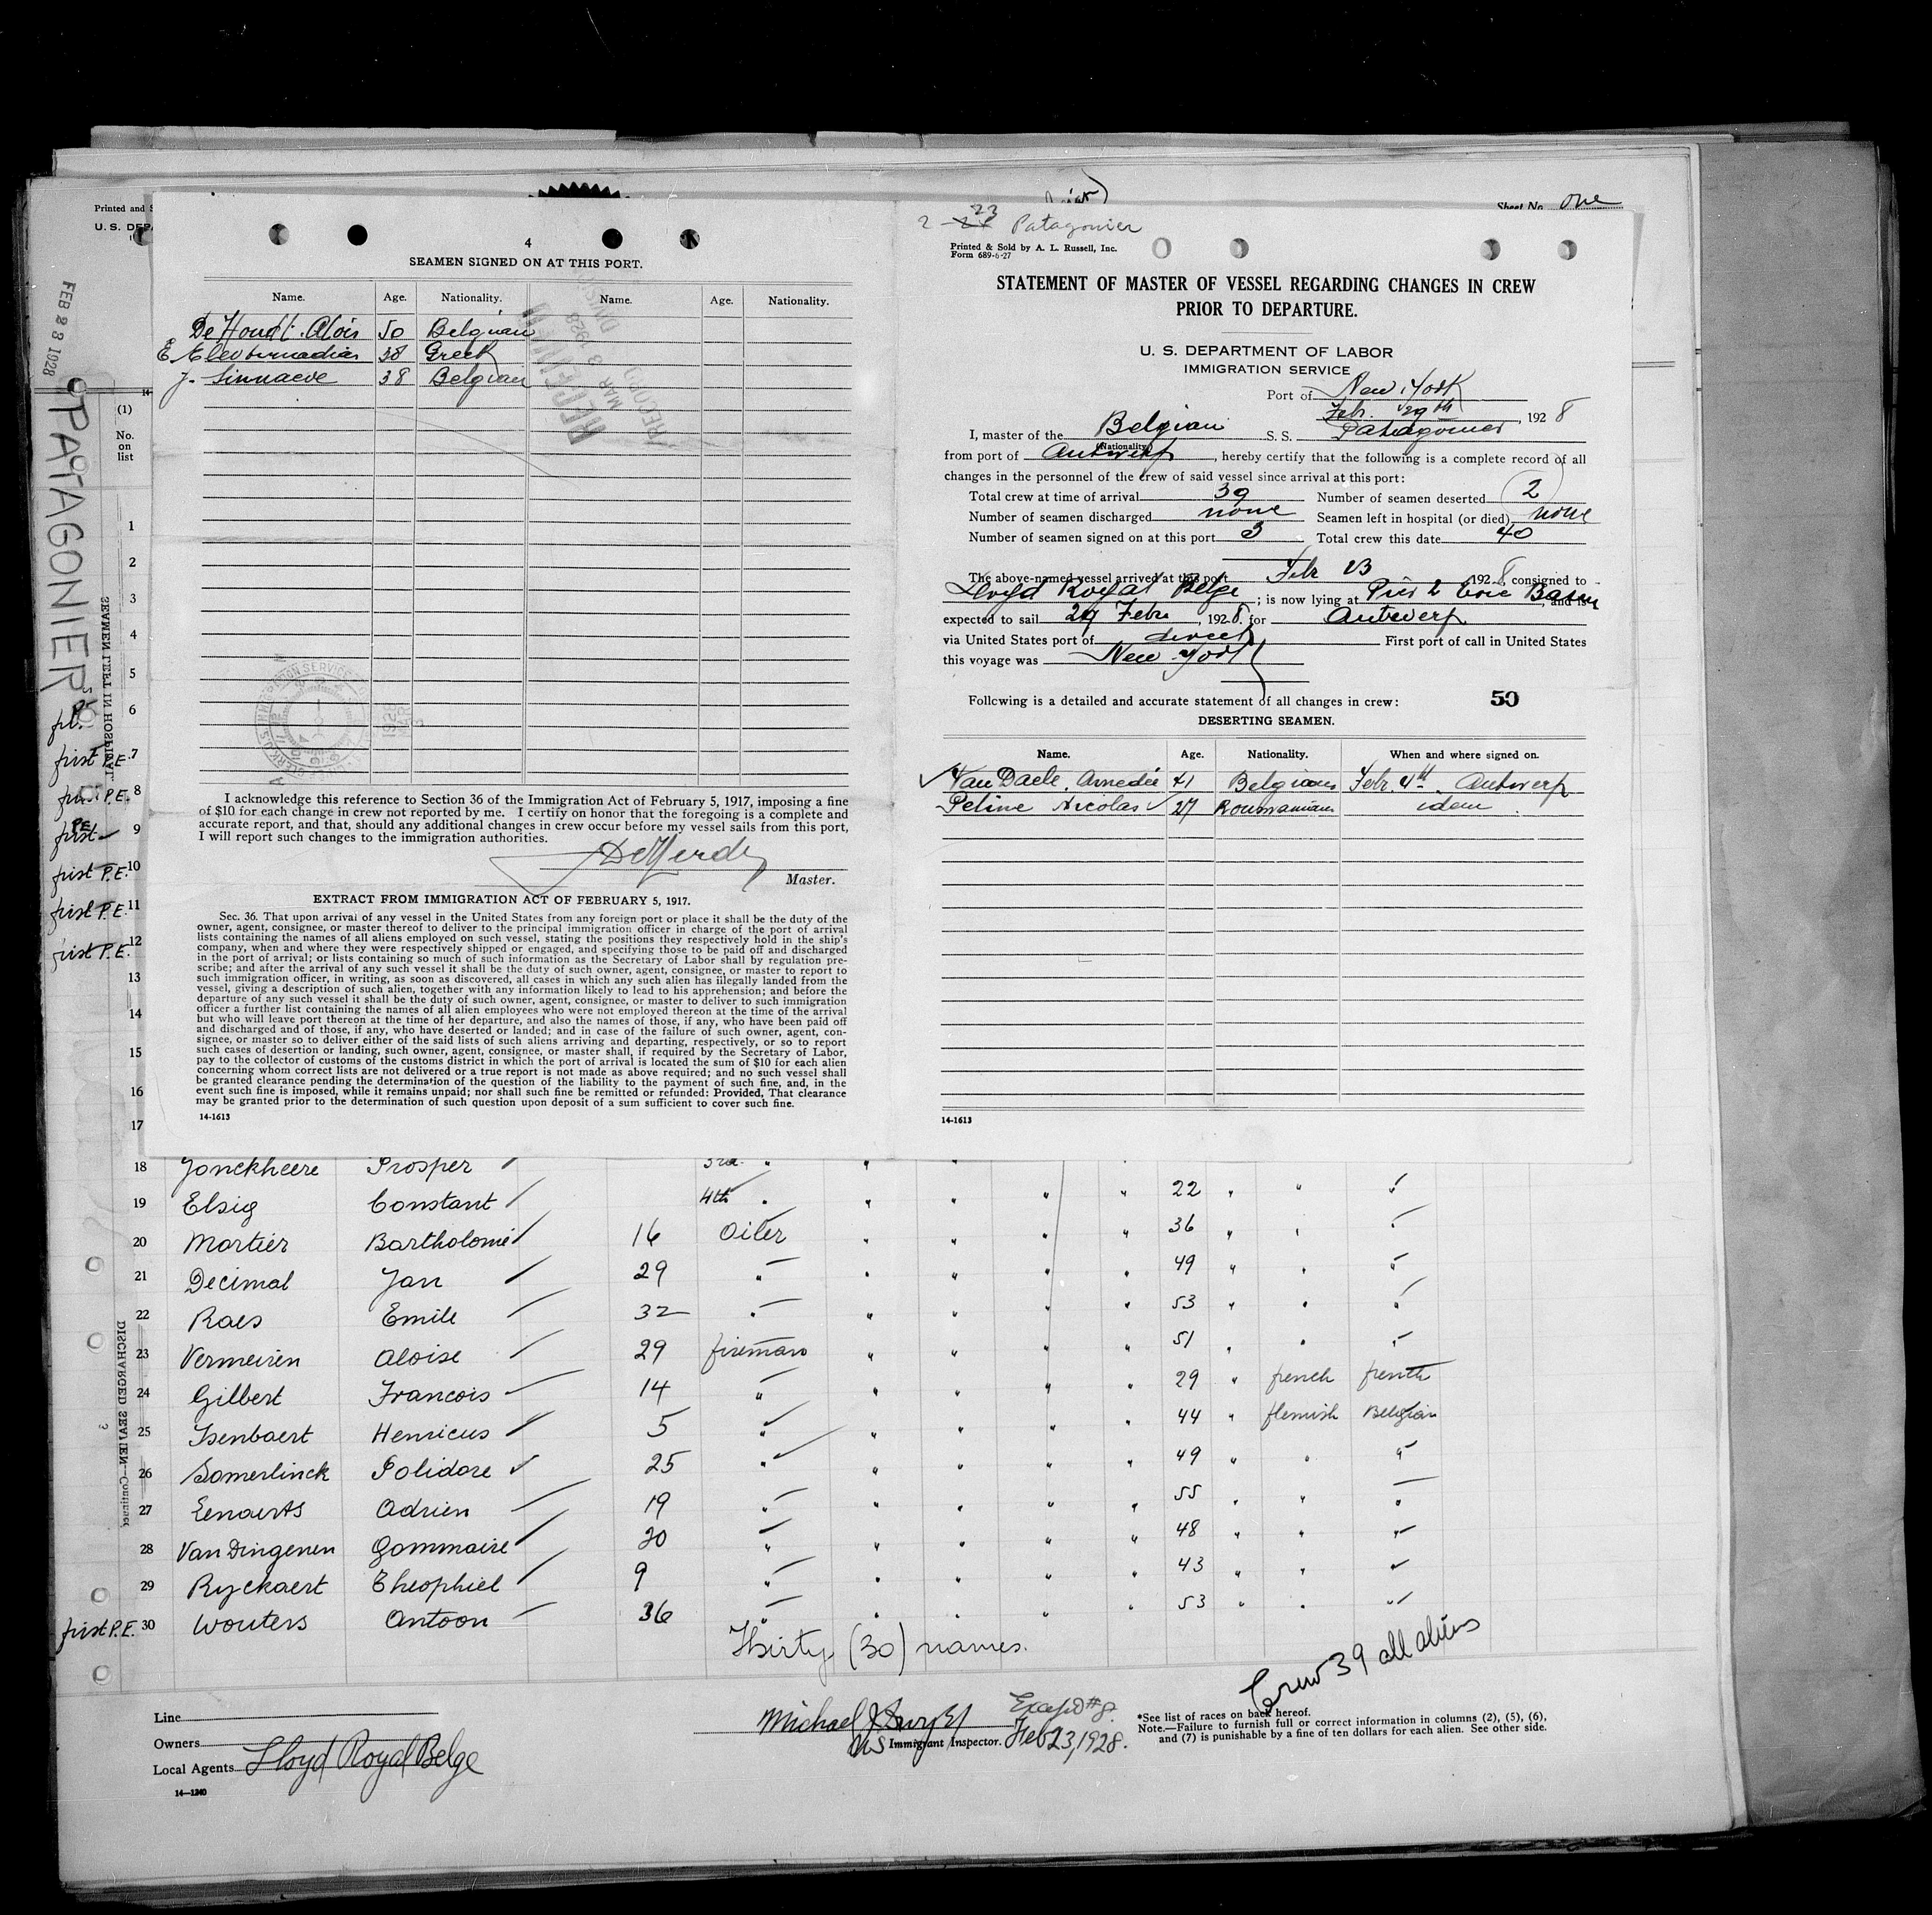 Printed and S
U. S. DEPA
FEB 23 1928
PATAGONIER
(1)
No.
on
list
SEAMEN LEFT IN HOSPITAL
DISCHARGED SEAMEN—Continued
4
SEAMEN SIGNED ON AT THIS PORT.
Name. Age. Nationality. Name. Age. Nationality.
De Houdt Alois 50 Belgian
E. 38 Greek
J. Sinnaeve 38 Belgian
RECEIVED
MAR 3 1928
I acknowledge this reference to Section 36 of the Immigration Act of February 5, 1917, imposing a fine
of $10 for each change in crew not reported by me. I certify on honor that the foregoing is a complete and
accurate report, and that, should any additional changes in crew occur before my vessel sails from this port,
I will report such changes to the immigration authorities.
Master.
EXTRACT FROM IMMIGRATION ACT OF FEBRUARY 5, 1917.
Sec. 36. That upon arrival of any vessel in the United States from any foreign port or place it shall be the duty of the
owner, agent, consignee, or master thereof to deliver to the principal immigration officer in charge of the port of arrival
lists containing the names of all aliens employed on such vessel, stating the positions they respectively hold in the ship's
company, when and where they were respectively shipped or engaged, and specifying those to be paid off and discharged
in the port of arrival; or lists containing so much of such information as the Secretary of Labor shall by regulation pre-
scribe; and after the arrival of any such vessel it shall be the duty of such owner, agent, consignee, or master to report to
such immigration officer, in writing, as soon as discovered, all cases in which any such alien has illegally landed from the
vessel, giving a description of such alien, together with any information likely to lead to his apprehension; and before the
departure of any such vessel it shall be the duty of such owner, agent, consignee, or master to deliver to such immigration
officer a further list containing the names of all alien employees who were not employed thereon at the time of the arrival
but who will leave port thereon at the time of her departure, and also the names of those, if any, who have been paid off
and discharged and of those, if any, who have deserted or landed; and in case of the failure of such owner, agent, con-
signee, or master so to deliver either of the said lists of such aliens arriving and departing, respectively, or so to report
such cases of desertion or landing, such owner, agent, consignee, or master shall, if required by the Secretary of Labor,
pay to the collector of customs of the customs district in which the port of arrival is located the sum of $10 for each alien
concerning whom correct lists are not delivered or a true report is not made as above required; and no such vessel shall
be granted clearance pending the determination of the question of the liability to the payment of such fine, and, in the
event such fine is imposed, while it remains unpaid; nor shall such fine be remitted or refunded: Provided, That clearance
may be granted prior to the determination of such question upon deposit of a sum sufficient to cover such fine.
14-1613
Sheet No. one
2-23 Patagonier
Printed & Sold by A. L. Russell, Inc.
Form 689-6-27
STATEMENT OF MASTER OF VESSEL REGARDING CHANGES IN CREW
PRIOR TO DEPARTURE.
U. S. DEPARTMENT OF LABOR
IMMIGRATION SERVICE
Port of New York
Febr. 29th, 1928
I, master of the Belgian S. S. Patagonier
(Nationality)
from port of Antwerp, hereby certify that the following is a complete record of all
changes in the personnel of the crew of said vessel since arrival at this port:
Total crew at time of arrival 39 Number of seamen deserted 2
Number of seamen discharged none Seamen left in hospital (or died) none
Number of seamen signed on at this port 3 Total crew this date 40
The above-named vessel arrived at this port Febr 23 1928 consigned to
Lloyd Royal Belge; is now lying at Pier 2 Erie Basin, and is
expected to sail 29 Febr, 1928. for Antwerp
via United States port of direct First port of call in United States
this voyage was New York
Following is a detailed and accurate statement of all changes in crew: 50
DESERTING SEAMEN.
Name. Age. Nationality. When and where signed on.
Van Daele Amedée 41 Belgian Febr. 4th Antwerp
Petine Nicolas 27 Roumanian idem
14-1613
1
2
3
4
5
6
first P.E. 7
P.E. 8
first P.E. 9
first P.E. 10
first P.E. 11
first P.E. 12
13
14
15
16
17
18 Jonckheere Prosper 3rd "
19 Elsig Constant 4th " " " " " 22 " " "
20 Mortier Bartholomé 16 Oiler " " " " 36 " " "
21 Decimal Jan 29 " " " " " 49 " " "
22 Raes Emile 32 " " " " " 53 " " "
23 Vermeiren Aloise 29 fireman " " " " 51 " " "
24 Gilbert Francois 14 " " " " " 29 " french french
25 Isenbaert Henricus 5 " " " " " 44 " flemish Belgian
26 Somerlinck Polidore 25 " " " " " 49 " " "
27 Lenaerts Adrien 19 " " " " " 55 " " "
28 Van Dingenen Gommaire 20 " " " " " 48 " " "
29 Ryckaert Theophiel 9 " " " " " 43 " " "
first P.E. 30 Wouters Antoon 36 " " " " " 53 " " "
Thirty (30) names.
Crew 39 all aliens
Line
Owners
Local Agents Lloyd Royal Belge
14—1240
Michael J.
Except #8.
US Immigrant Inspector. Feb 23, 1928.
*See list of races on back hereof.
Note.—Failure to furnish full or correct information in columns (2), (5), (6),
and (7) is punishable by a fine of ten dollars for each alien. See other side.